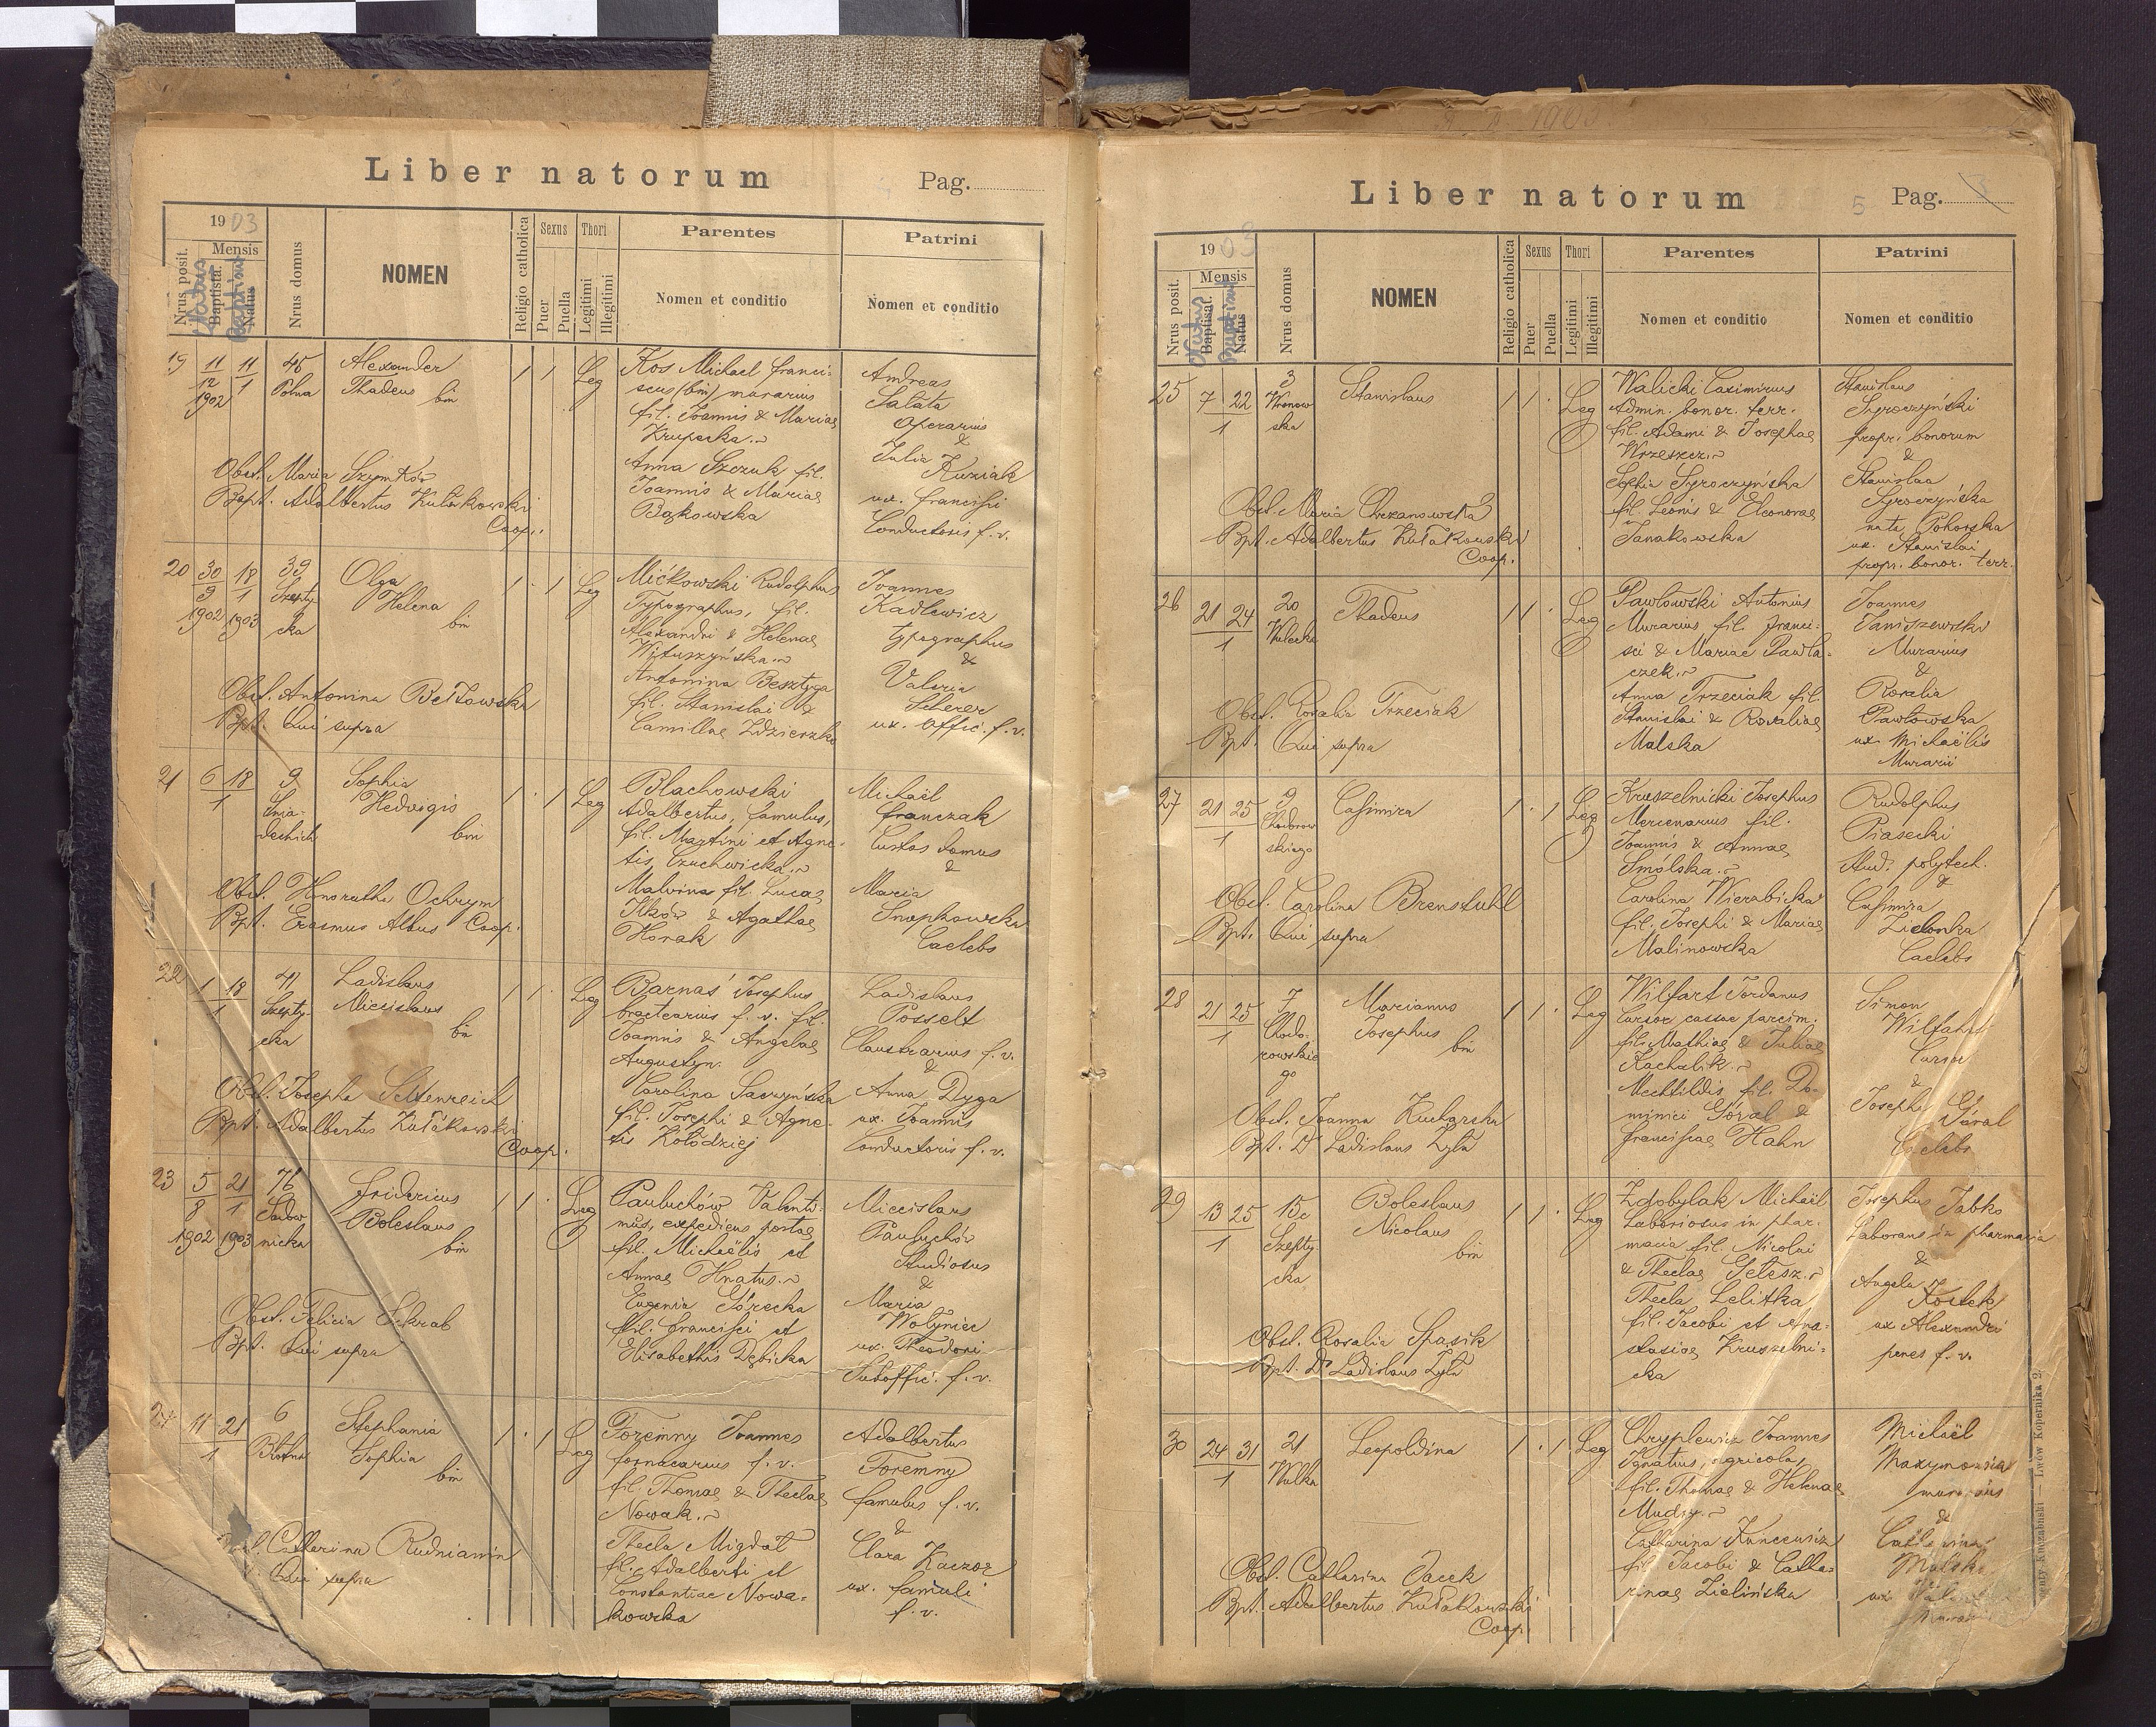 Liber natorum
Pag.
1903
Nrus posit.
Mensis
Baptisat.
Natus
Natus
Baptisatus
Nrus domus
NOMEN
Religio catholica
Sexus
Puer
Puella
Thori
Legitimi
Illegitimi
Parentes
Nomen et conditio
Patrini
Nomen et conditio
19
11 11
12 1
1902
46
Polna
Alexander
Thadeus
bin
1 1
Leg
Kos Michael Franci-
scus (bin) murarius
fil. Joannis & Mariae
Krupecka
Anna Szczuk fil.
Joannis & Mariae
Bąkowska
Andreas
Salata
Operarius
&
Julia
Kuziak
ux. Francisci
Conductoris f. v.
Obst. Maria Szymków
Bapt. Adalbertus Kułakowski
Coop.
20
30 18
9 1
1902 1903
39
Szepty-
cka
Olga
Helena
bin
1 · 1
Leg
Mićkowski Rudolphus
Typographus, fil.
Alexandri & Helenae
Wituszyńska
Antonina Besztyga
fil. Stanislai &
Camillae Zdzierzko
Joannes
Kadlewicz
typographus
&
Valeria
Scherer
ux. Offic. f. v.
Obst. Antonina Bełzowska
Bpt. Qui supra
21
6 18
1
9
Śnia-
deckich
Sophia
Hedvigis
bin
1 · 1
Leg
Blachowski
Adalbertus, famulus,
fil. Martini et Agne-
tis Czuchwicka
Malvina fil. Lucae
Ilków & Agathae
Horak
Michaël
Franczak
Custos domus
&
Maria
Snopkowska
Caelebs
Obst. Honoratha Ochrym
Bpt. Erasmus Albus Coop.
22
1 18
1
41
Szepty-
cka
Ladislaus
Miecislaus
bin
1 1 ·
Leg
Barnaś Josephus
bractearius f. v. fil.
Joannis & Angelae
Augustyn.
Carolina Saczyńska
fil. Josephi & Agne-
tis Kołodziej
Ladislaus
Posselt
Claustrarius f. v.
&
Anna Dyga
ux. Joannis
Conductoris f. v.
Obst. Josepha Seltenreich
Bpt. Adalbertus Kułakowski
Coop.
23
5 21
8 1
1902 1903
76
Sadow
nicka
Fridericus
Boleslaus
bin
1 1 ·
Leg
Pauluchów Valenti-
nus, expediens postae
fil. Michaëlis et
Annae Hnatus
Eugenia Górecka
fil. Francisci et
Elisabethis Dębicka
Miecislaus
Pauluchów
Studiosus
&
Maria
Wołyniec
ux. Theodori
Suboffic. f. v.
Obst. Felicia Schrab
Bpt. Qui supra
24
11 21
1
6
Błotna
Stephania
Sophia
bin
1 · 1
Leg
Foremny Joannes
fornacarius f. v.
fil. Thomae & Theclae
Nowak
Thecla Migdał
fil. Adalberti et
Constantiae Nowa-
kowska
Adalbertus
Foremny
famulus f. v.
&
Clara Kaczor
ux. famuli
f. v.
Catharina Rudniawin
Qui supra
Liber natorum
5
Pag. 3
1903
Nrus posit.
Mensis
Baptisat.
Natus
Natus
Baptisatus
Nrus domus
NOMEN
Religio catholica
Sexus
Puer
Puella
Thori
Legitimi
Illegitimi
Parentes
Nomen et conditio
Patrini
Nomen et conditio
25
7 22
1
3
Wronow
ska
Stanislaus
1 1 ·
Leg
Walicki Casimirus
Admin. bonor. terr.
fil. Adami & Josephae
Wrzeszcz
Sophia Sgroczyńska
fil. Leonis & Eleonorae
Janakowska
Stanislaus
Sgroczyński
propr. bonorum
&
Stanislaa
Sgroczyńska
nata Pohorska
ux. Stanislai
propr. bonor. terr.
Obst. Maria Chrzanowska
Bpt. Adalbertus Kułakowski
Coop.
26
21 24
1
20
Wulecka
Thadeus
1 1 ·
Leg
Pawłowski Antonius
Murarius fil. Franci-
sci & Mariae Pawla-
czek
Anna Trzeciak fil.
Stanislai & Rosaliae
Malska
Joannes
Janiszewski
Murarius
&
Rosalia
Pawłowska
ux. Michaëlis
Murarii
Obst. Rosalia Trzeciak
Bpt. Qui supra
27
21 25
1
9
Chodorow
skiego
Casimira
1 · 1
Leg
Kruszelnicki Josephus
Mercenarius fil.
Joannis & Annae
Smólska
Carolina Wierzbicka
fil. Josephi & Mariae
Malinowska
Rudolphus
Piasecki
Aud. polytech.
&
Casimira
Zielonka
Caelebs
Obst. Carolina Brenstuhl
Bpt. Qui supra
28
21 25
1
7
Chodo-
rowskie
go
Marianus
Josephus
bin
1 1 ·
Leg
Wilfart Jordanus
Cursor cassae parcim.
fil. Mathiae & Juliae
Kachalik
Mechtildis fil. Do-
minici Góral &
Franciscae Hahn
Simon
Wilfahrt
Cursor
&
Josepha
Góral
Caelebs
Obst. Joanna Kucharska
Bpt. Dr Ladislaus Żyła
29
13 25
1
15c
Szepty-
cka
Boleslaus
Nicolaus
bin
1 1 ·
Leg
Zdobylak Michaël
Laboriosus in phar-
macia fil. Nicolai
& Theclae Getesz
Thecla Lelitka
fil. Jacobi et Ana-
stasiae Kruszelni-
cka
Josephus Jabko
Laborans in pharmacia
&
Angela
Kostek
ux Alexandri
penes f. v.
Obst. Rosalia Spasik
Bpt. Dr Ladislaus Żyła
30
24 31
1
21
Wulka
Leopoldina
1 · 1
Leg
Chryplewicz Joannes
Ignatius, agricola,
fil. Thomae & Helenae
Mudry
Catharina Kuncewicz
fil. Jacobi & Catha-
rinae Zielińska
Michaël
Maxymowicz
murarius
&
Catharina
Malska
ux.
Obst. Catharina Jacek
Bpt. Adalbertus Kułakowski
Coop.
Lwów Kopernika 2.